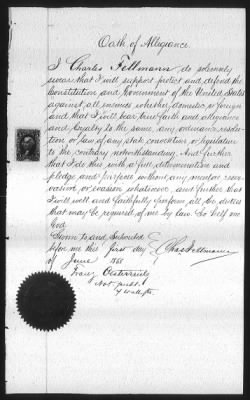 Oath of Allegiance.
I Charles Fellmann, do solemnly
swear that I will support protect and defend the
Constitution and Government of the United States
against all enemies whether domestic or foreign
and that I will bear true faith and allegiance
and loyalty to the same, any ordinance, resolu-
tion or law of any state convention or legislation
to the contrary notwithstanding. And further
that I do this with a full determination and
pledge and purpose without any mental reser-
vation, or evasion whatsoever, and further that
I will well and faithfully perform all the duties
that may be required of me by law. So help me
God.
Sworn to and subscribed
before me this first day
of June 1868
Chas Fellmann
Franz
Not. publ.